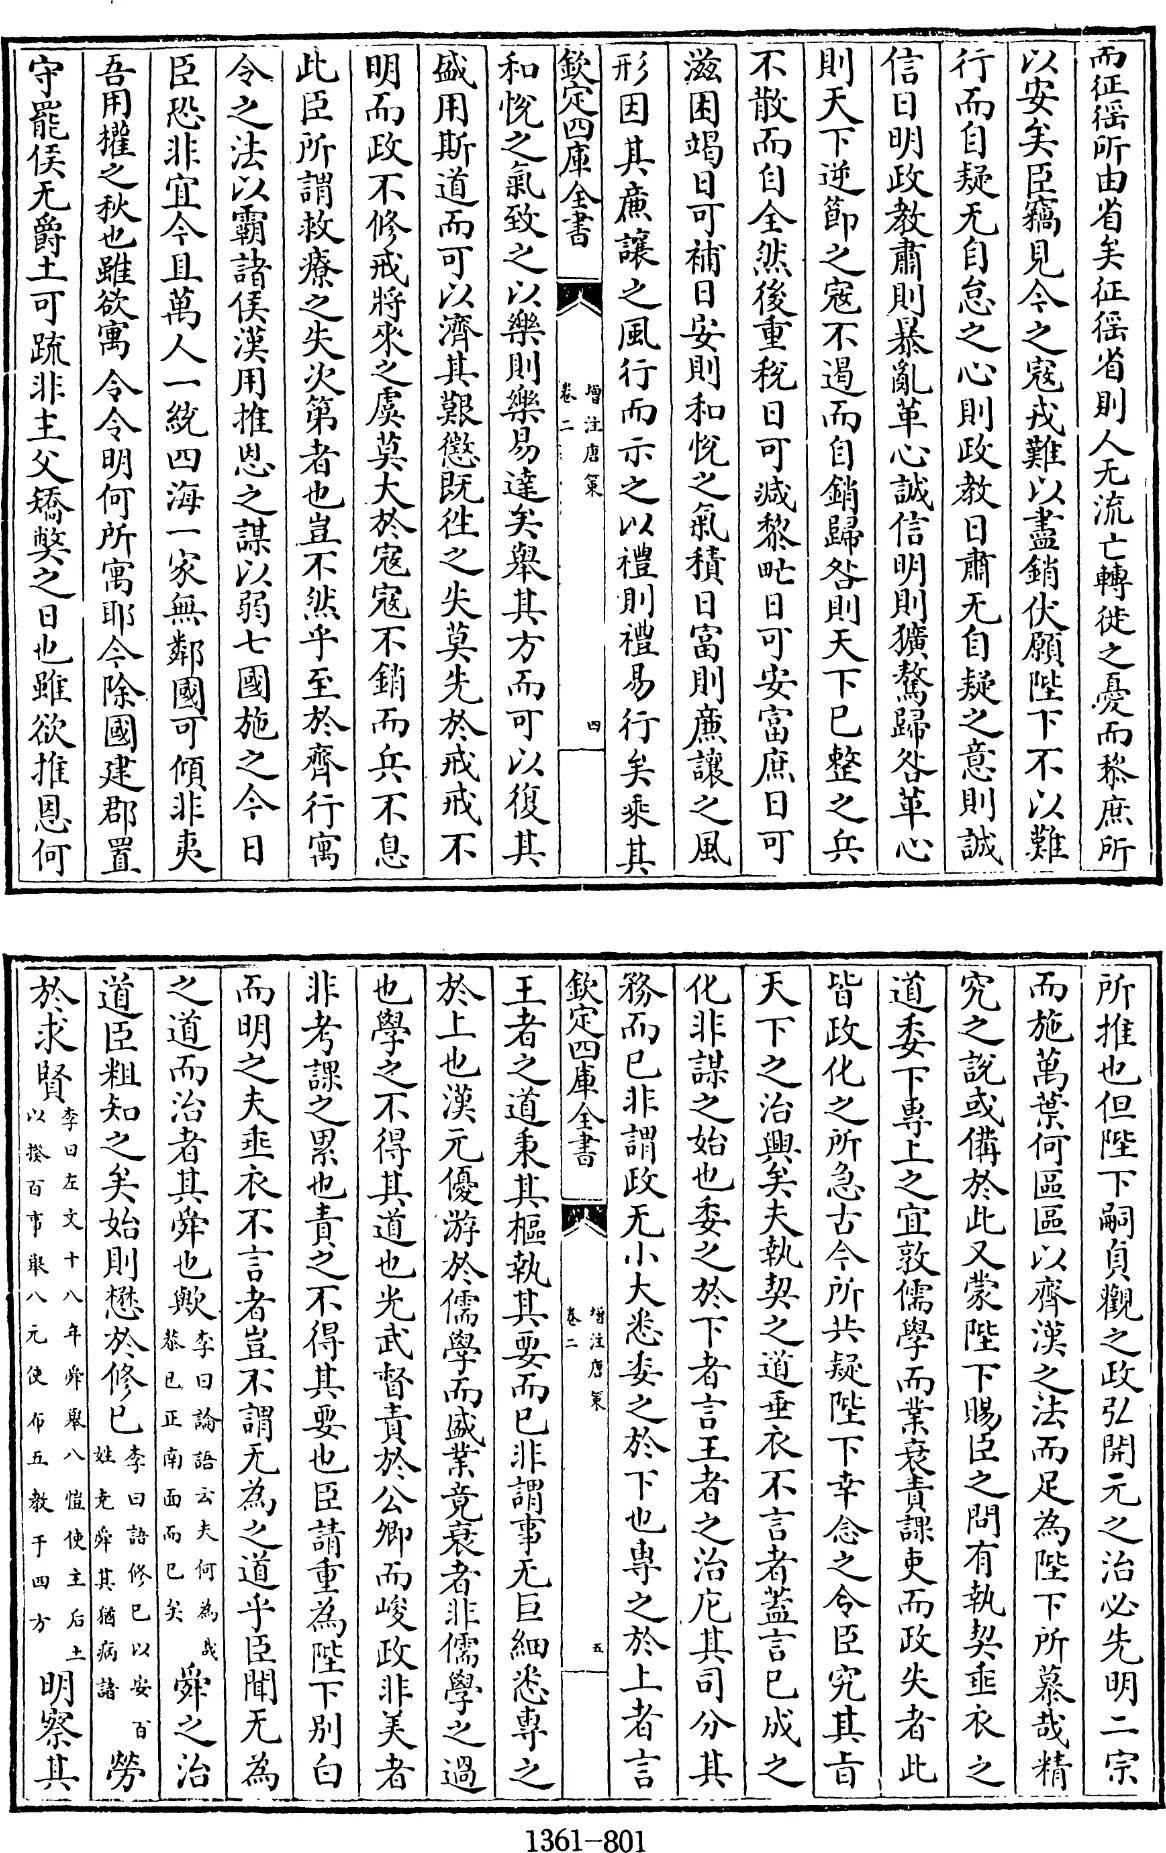 而征徭所由省矣征徭省則人无流亡轉徙之憂而黎庶所
以安矣臣竊見今之寇戎難以盡銷伏願陛下不以難
行而自疑无自怠之心則政教日肅无自疑之意則誠
信日明政教肅則暴亂革心誠信明則獷驁歸咎革心
則天下逆節之寇不遏而自銷歸咎則天下已整之兵
不散而自全然後重稅日可減黎甿日可安富庶日可
滋困竭日可補日安則和悅之氣積日富則廉讓之風
形因其廉讓之風行而示之以禮則禮易行矣乘其
欽定四庫全書
增注唐策
卷二
四
和悅之氣致之以樂則樂易達矣舉其方而可以復其
盛用斯道而可以濟其艱懲既徃之失莫先於戒戒不
明而政不修戒將來之虞莫大於寇寇不銷而兵不息
此臣所謂救療之失次第者也豈不然乎至於齊行寓
令之法以霸諸侯漢用推恩之謀以弱七國施之今日
臣恐非宜今且萬人一統四海一家無鄰國可傾非夷
吾用權之秋也雖欲寓令令明何所寓耶今除國建郡置
守罷侯无爵土可疏非主父矯弊之日也雖欲推恩何
所推也但陛下嗣貞觀之政弘開元之治必先明二宗
而施萬葉何區區以齊漢之法而足為陛下所慕哉精
究之說或備於此又蒙陛下賜臣之問有執契垂衣之
道委下專上之宜敦儒學而業衰責課吏而政失者此
皆政化之所急古今所共疑陛下幸念之令臣究其旨
天下之治興矣夫執契之道垂衣不言者蓋言已成之
化非謀之始也委之於下者言王者之治庀其司分其
務而已非謂政无小大悉委之於下也專之於上者言
欽定四庫全書
增注唐策
卷二
五
王者之道秉其樞執其要而已非謂事无巨細悉專之
於上也漢元優游於儒學而盛業竟衰者非儒學之過
也學之不得其道也光武督責於公卿而峻政非美者
非考課之累也責之不得其要也臣請重為陛下別白
而明之夫垂衣不言者豈不謂无為之道乎臣聞无為
之道而治者其舜也歟李曰論語云夫何為哉恭已正南面而已矣舜之治
道臣粗知之矣始則懋於修已李曰語修已以安百姓尭舜其猶病諸勞
於求賢李曰左文十八年舜舉八愷使主后土以揆百事舉八元使布五教于四方明察其
1361-801